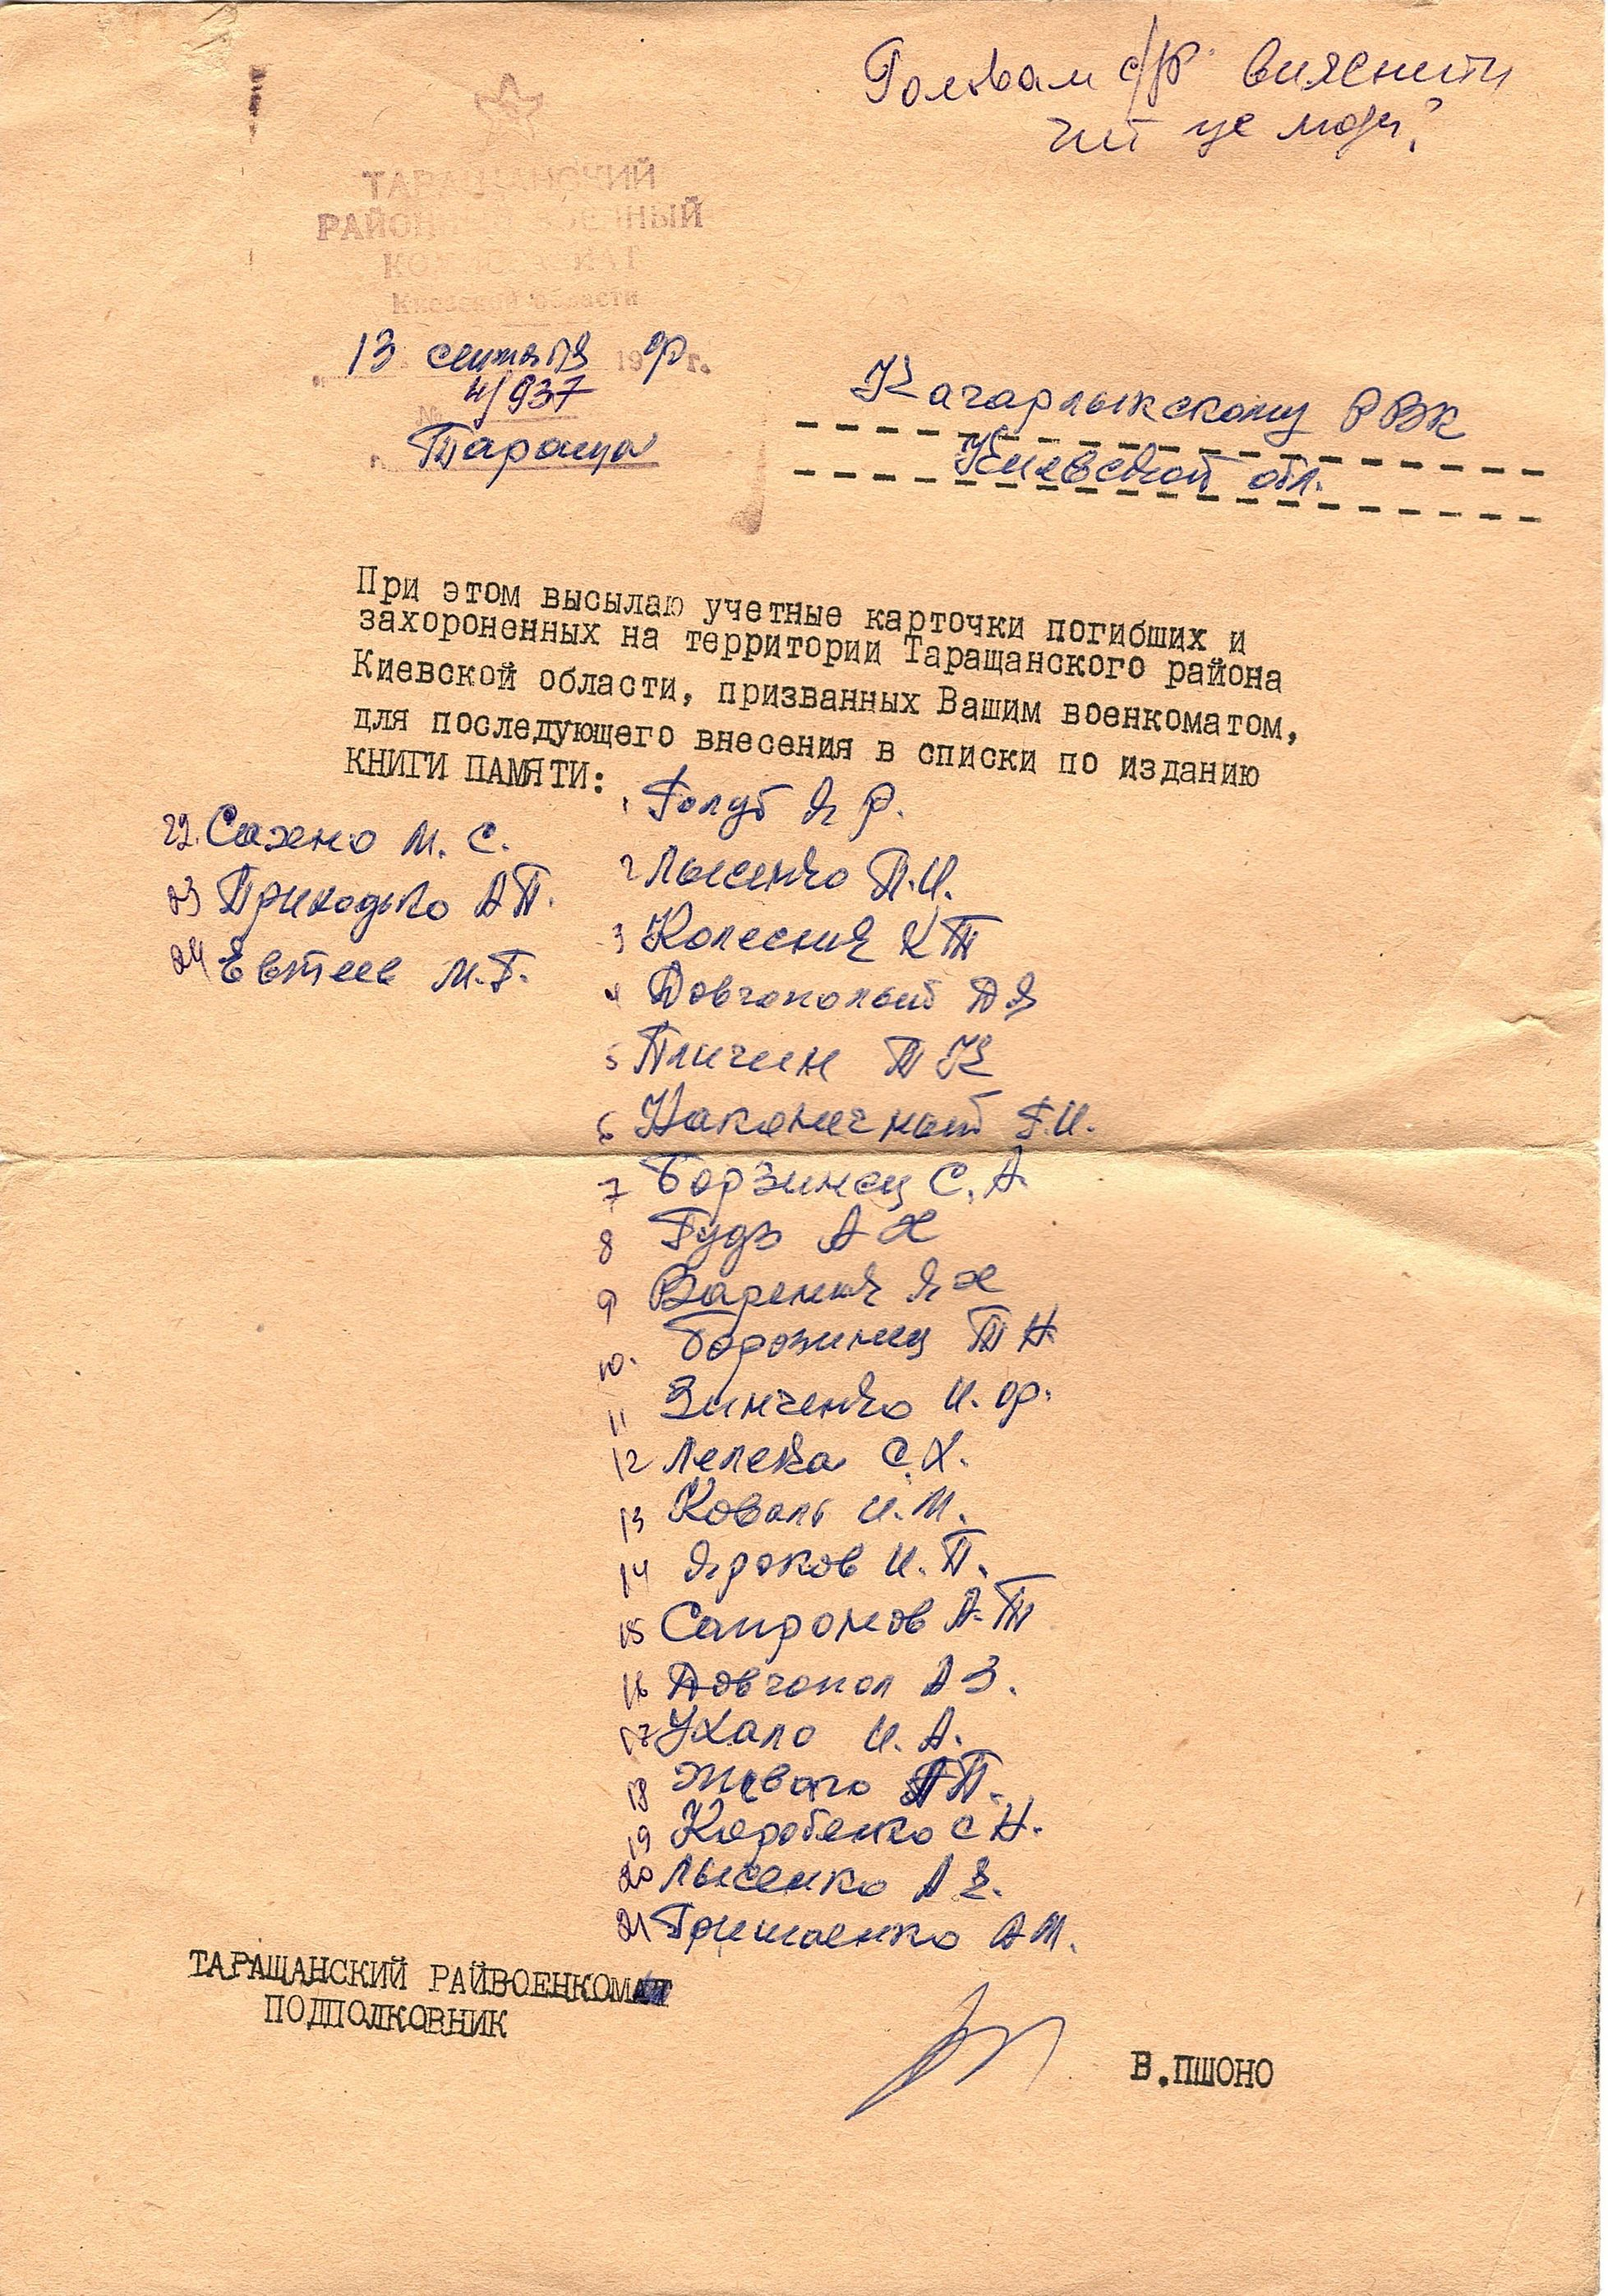 Головам с/р вияснити
чиї це люди?
ТАРАЩАНСКИЙ
РАЙОННЫЙ ВОЕННЫЙ
КОМИССАРИАТ
Киевской области
13 сентября 19 г.
№ 4/937
г. Тараща
Кагарлыкскому РВК
Киевской обл.
При этом высылаю учетные карточки погибших и
захороненных на территории Таращанского района
Киевской области, призванных Вашим военкоматом,
для последующего внесения в списки по изданию
КНИГИ ПАМЯТИ:
1 Голуб Я Ф.
2 Лысенко П.И.
3 Колесник К Т
4 Довгополый Д Я
5 Пличин Т К
6 Наконечный Г.И.
7 Борзинец С. А.
8 Гудз А Х
9 Вареник Я Х
10. Борозинец Т Н
11 Зинченко И. Ф.
12 Лелека С.Х.
13 Коваль И.М.
14 Яроков И. П.
15 Сапронов А.Т
16 Довгопол А З.
17 Ухало И. А.
18 Живаго П.
19 Коробенко С Н.
20 Лысенко А Е.
21 Гришаенко А М.
22. Сахно М. С.
23 Приходько А П.
24 Евтеев М.Г.
ТАРАЩАНСКИЙ РАЙВОЕНКОМ
ПОДПОЛКОВНИК
В.ПШОНО